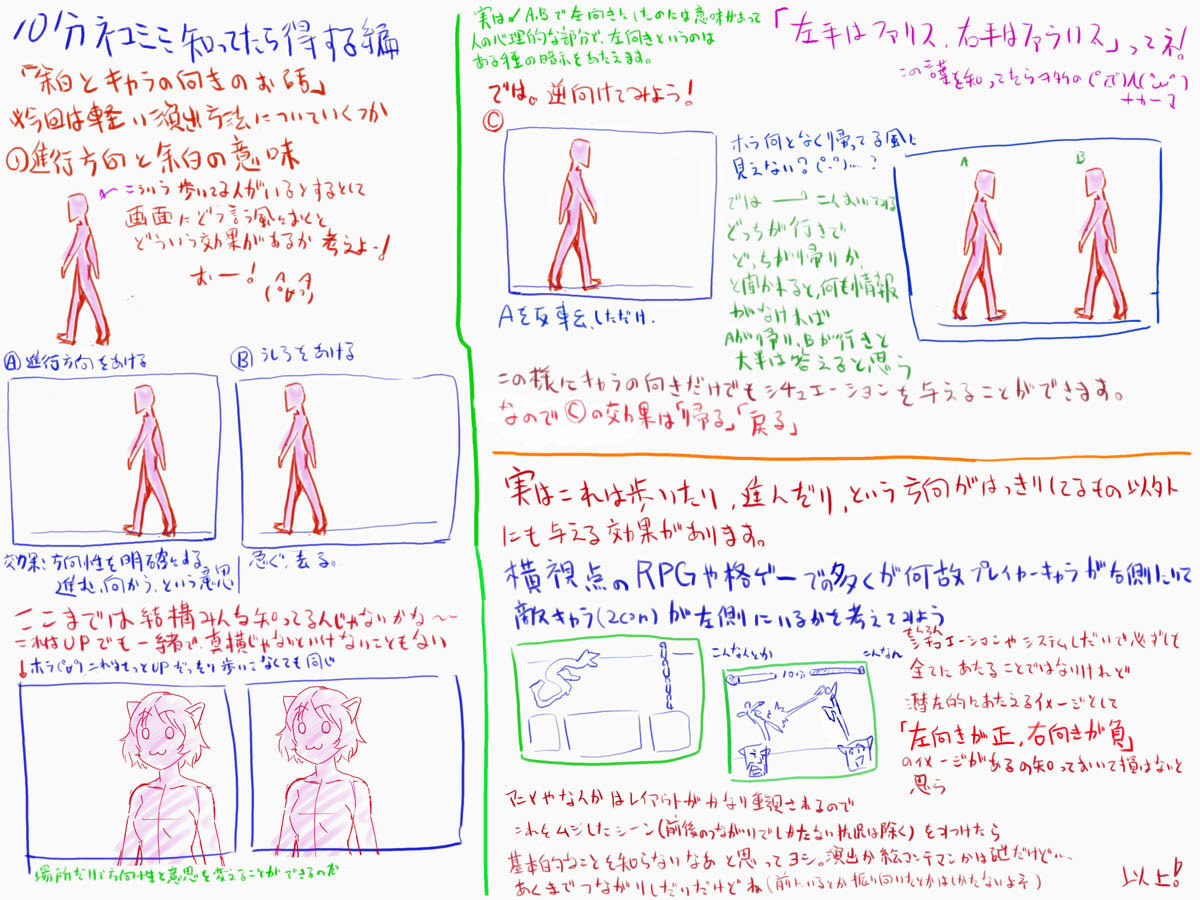 10分ネコミミ知ってたら得する編
「余白とキャラの向きのお話」
今回は軽い演出方法についていくつか
①進行方向と余白の意味
こういう歩いてる人がいるとするとして
画面にどう言う風におくと
どういう効果があるか考えよー!
おー!
Ⓐ進行方向をあける
Ⓑうしろをあける
効果:方向性を明確にする
進む、向かう、という意思
急ぐ、去る。
ここまでは結構みんな知ってるんじゃないかな〜〜
これはUPでも一緒で、真横じゃないといけないこともない
↓ホラ(°∀°)これはもっとUPだったり歩いてなくても同じ
場所だけで方向性と意思を変えることができるのだ
実は✓A.Bで左向きにしたのには意味があって
人の心理的な部分で、左向きというのは
ある種の暗示をあたえます。
では。逆向けてみよう!
Ⓒ
Aを反転しただけ.
「左手はファリス、右手はファラリス」ってネ!
この諺を知ってたら
ナカーマ
ホラ何となく帰ってる風に
見えない?(°-°)...?
では
どっちが行きで
どっちが帰りか、
と聞かれると、何も情報
がなければ
Aが帰り、Bが行きと
大半は答えると思う
A
B
この様にキャラの向きだけでもシチュエーションを与えることができます。
なのでⒸの効果は「帰る」「戻る」
実はこれは歩いたり、進んだり、という方向がはっきりしてるもの以外
にも与える効果があります。
横視点のRPGや格ゲーでの多くが何故プレイヤーキャラが右側にいて
敵キャラ(2con)が左側にいるかを考えてみよう
こんなんとか
こんなん
10分
もちろん
シチュエーションやシステムしだいで必ずしも
全てにあたることではないけれど
潜在的にあたえるイメージとして
「左向きが正、右向きが負」
のイメージがあるの知っておいて損はないと
思う
アニメやなんかはレイアウトがかなり重視されるので
これをムシしたシーン(前後のつながりでしかたない状況は除く)をみつけたら
基本的なことを知らないなあと思ってヨシ。演出か絵コンテマンかは謎だけど…
あくまでつながりしだいだけどね(前にいるとか振り向いたとかはしかたないよネ)
以上!